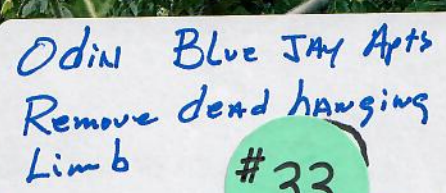 Odin Blue Jay Apts
Remove dead hanging
Limb
#33